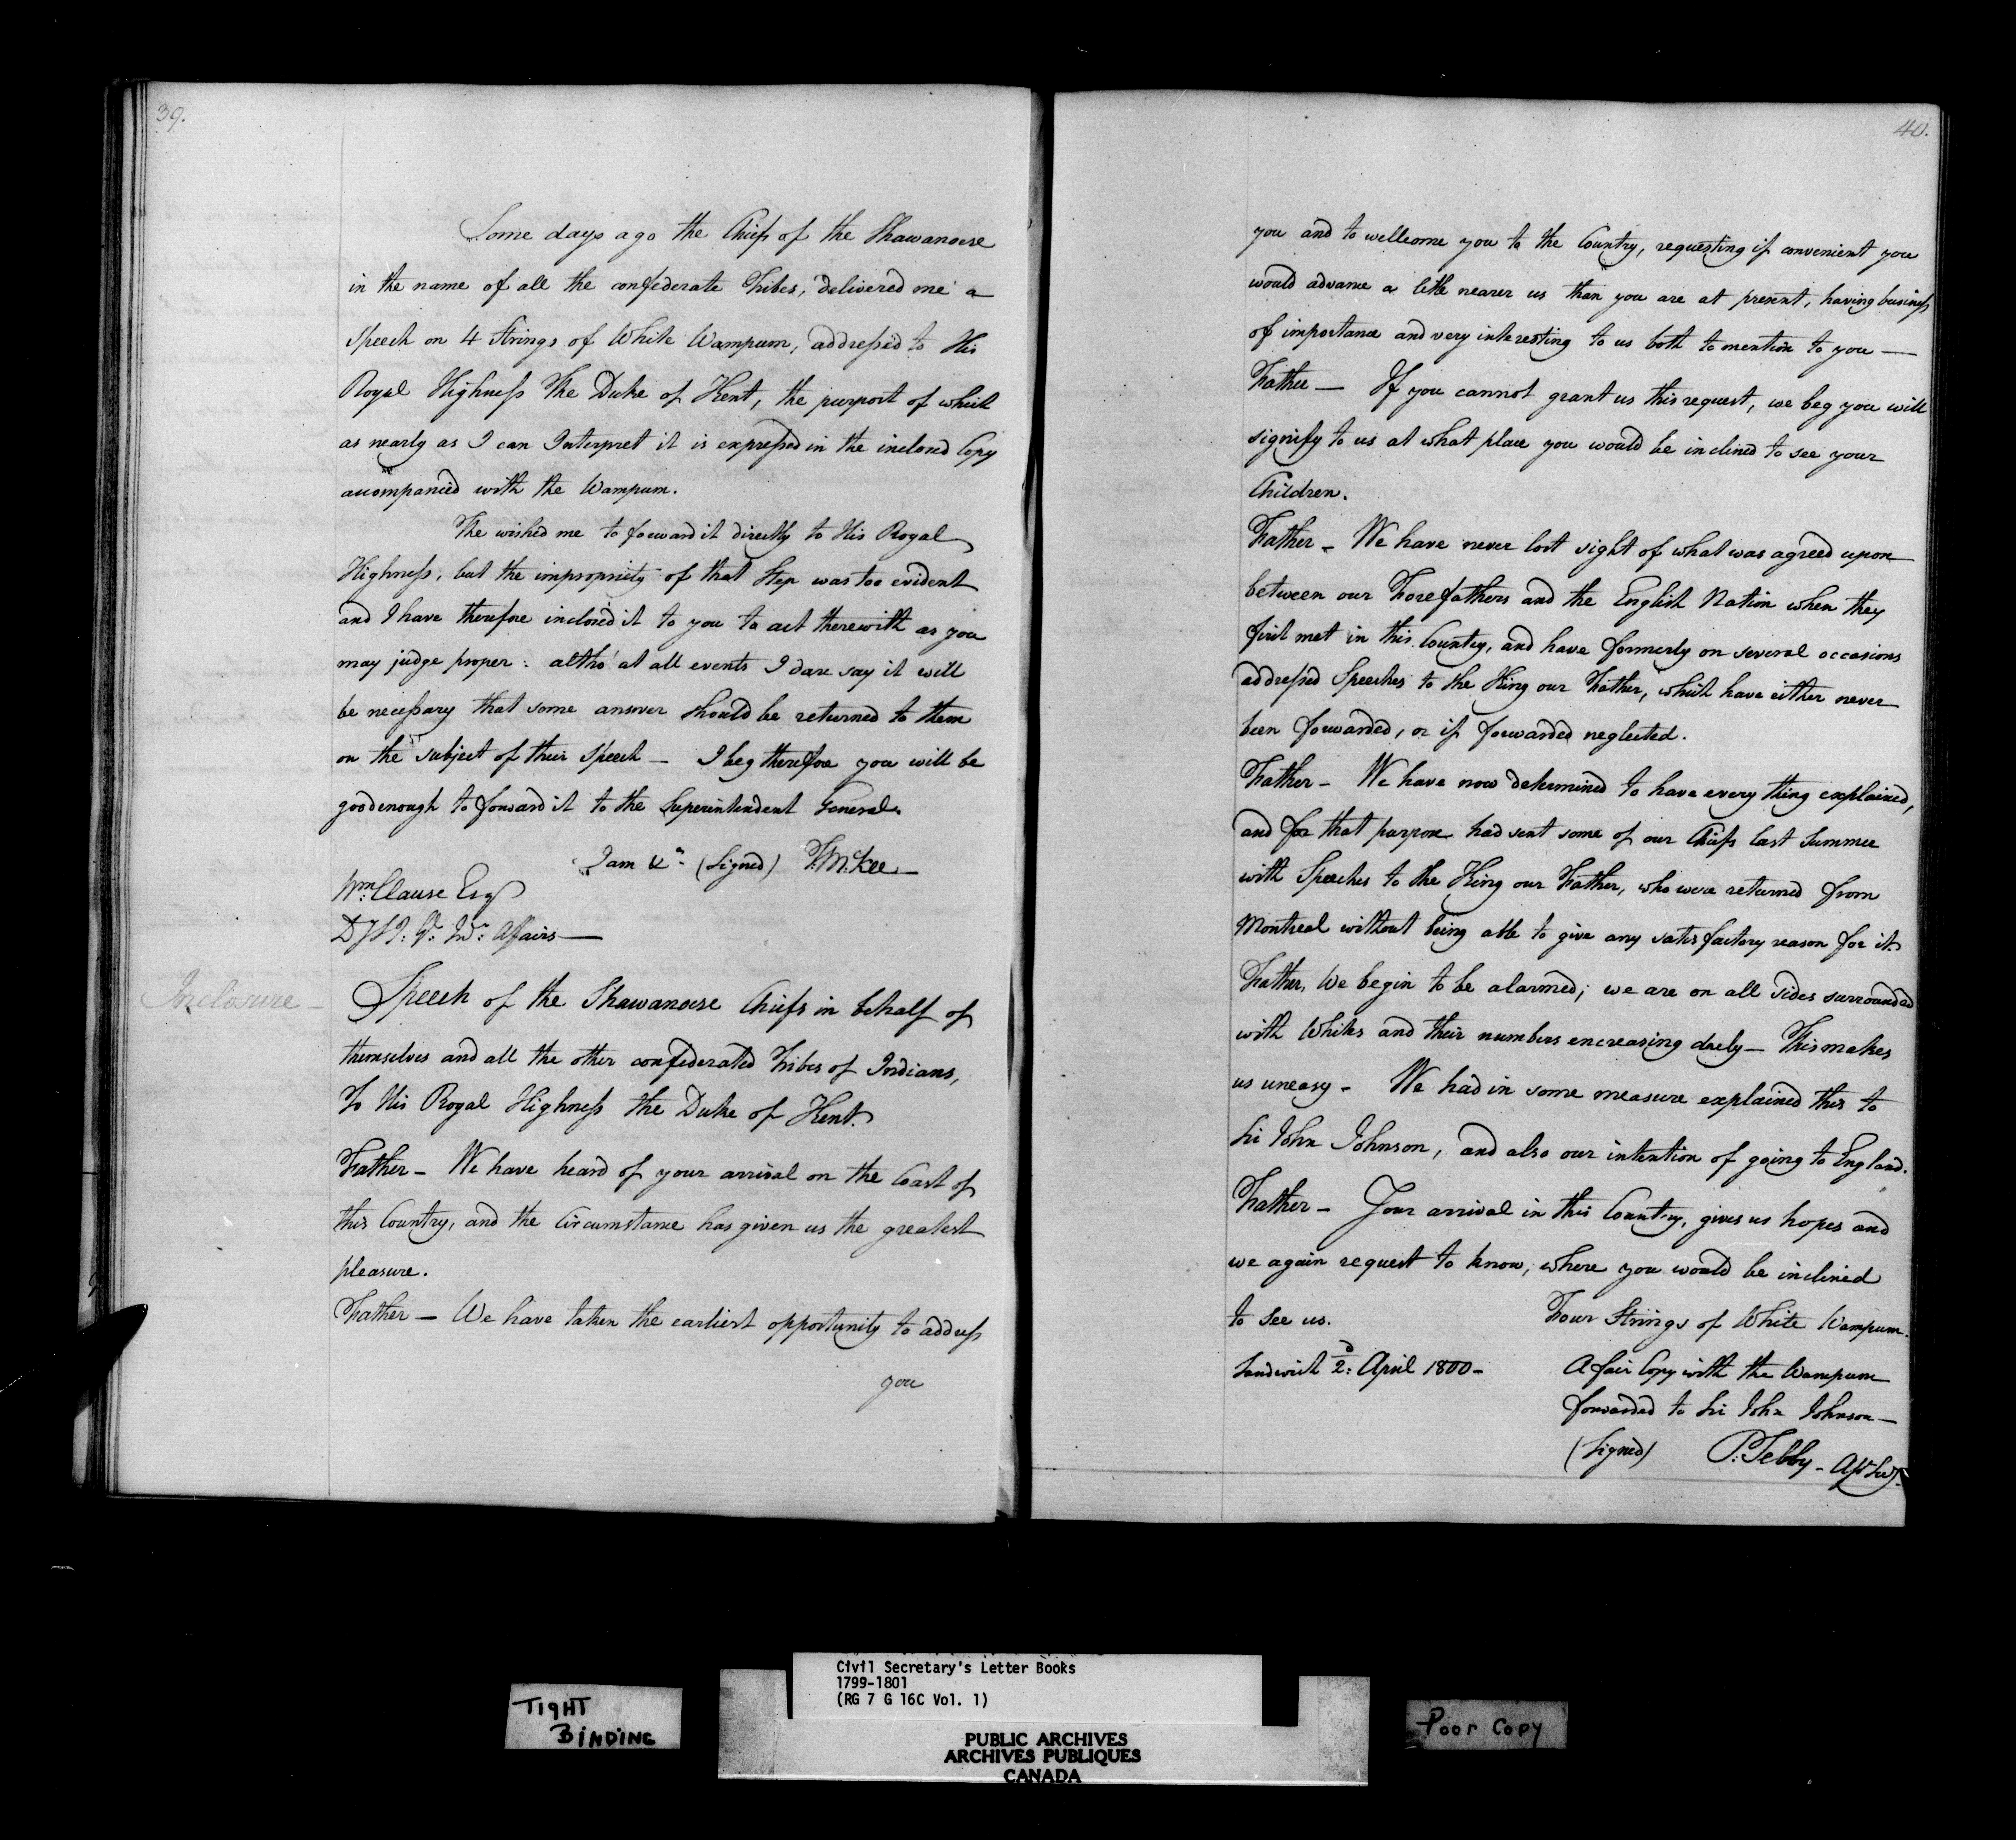 39.
Some days ago the Chiefs of the Shawanoese
in the name of all the confederate Tribes, delivered me a
Speech on 4 Strings of White Wampum, addressed to His
Royal Highness The Duke of Kent, the purport of which
as nearly as I can Interpret it is expressed in the inclosed Copy
accompanied with the Wampum.
The wished me to forward it directly to His Royal
Highness, but the impropriety of that Step was too evident
and I have therefore inclosed it to you to act therewith as you
may judge proper: altho' at all events I dare say it will
be necessary that some answer should be returned to them
on the subject of their Speech — I beg therefore you will be
good enough to forward it to the Superintendent General.
I am &c. (Signed) T. McKee —
Wm. Clause Esq
Inr. Affairs —
Inclosure —
Speech of the Shawanoese Chiefs in behalf of
themselves and all the other confederated Tribes of Indians,
To His Royal Highness the Duke of Kent.
Father — We have heard of your arrival on the Coast of
this Country, and the Circumstance has given us the greatest
pleasure.
Father — We have taken the earliest opportunity to address
you
40.
you and to wellcome you to the Country, requesting if convenient you
would advance a little nearer us than you are at present, having business
of importance and very interesting to us both to mention to you —
Father — If you cannot grant us this request, we beg you will
signify to us at what place you would be inclined to see your
Children.
Father — We have never lost sight of what was agreed upon
between our Forefathers and the English Nation when they
first met in this Country, and have formerly on several occasions
addressed Speeches to the King our Father, which have either never
been forwarded, or if forwarded neglected.
Father — We have now determined to have every thing explained,
and for that purpose had sent some of our Chiefs last Summer
with Speeches to the King our Father, who were returned from
Montreal without being able to give any satisfactory reason for it.
Father, We begin to be alarmed; we are on all sides surrounded
with Whites and their numbers encreasing daely — This makes
us uneasy — We had in some measure explained this to
Sir John Johnson, and also our intention of going to England.
Father — Your arrival in this Country, gives us hopes and
we again request to know, where you would be inclined
to see us. Four Strings of White Wampum.
Sandwich 2d: April 1800 —
A fair Copy with the Wampum
forwarded to Sir John Johnson —
(Signed) P. Selby — Ast. Secy.
Civil Secretary's Letter Books
1799-1801
(RG 7 G 16C Vol. 1)
TIGHT
BINDING
PUBLIC ARCHIVES
ARCHIVES PUBLIQUES
CANADA
Poor Copy